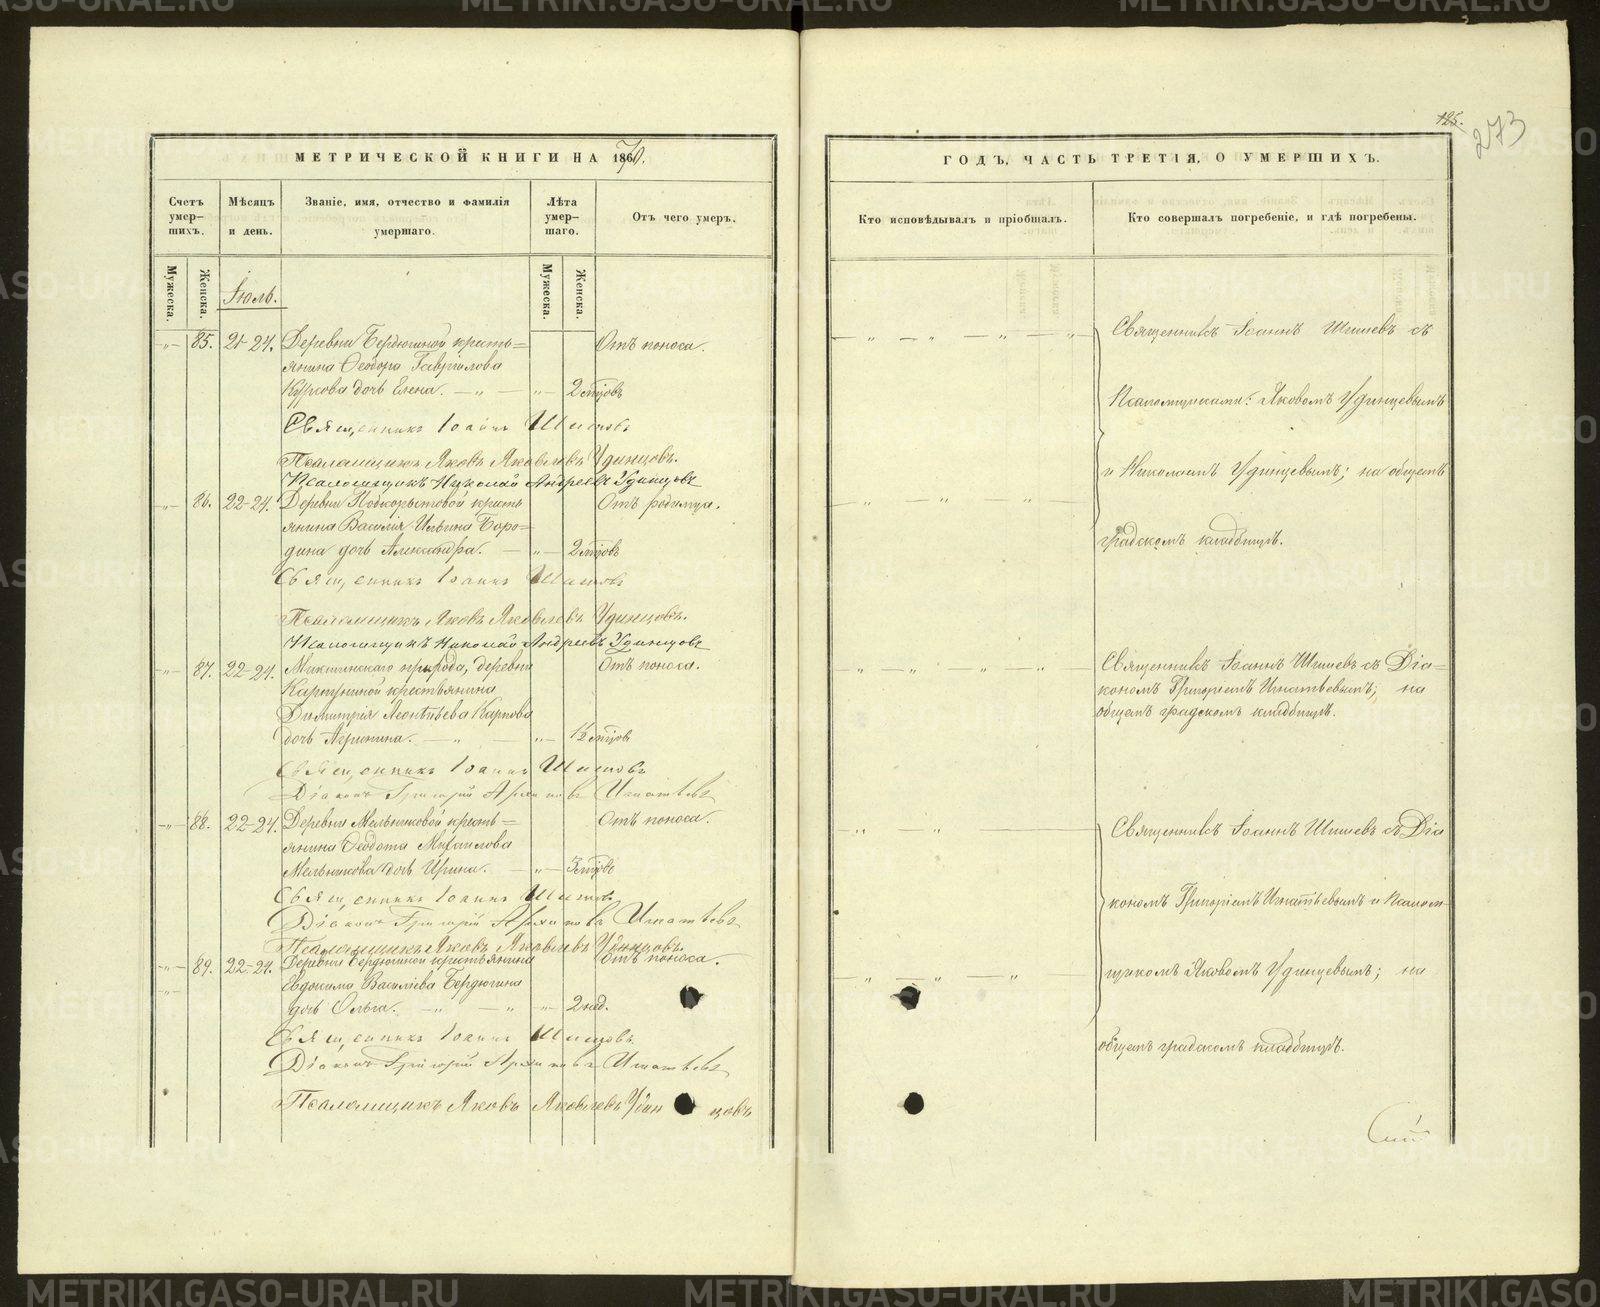 МЕТРИЧЕСКОЙ КНИГИ НА 1870.
Счетъ умер-шихъ.
Мѣсяцъ и день.
Званіе, имя, отчество и фамилія умершаго.
Лѣта умер-шаго.
Отъ чего умеръ.
Мужеска.
Женска.
Мужеска.
Женска.
Іюль.
85. 21-24. Деревни Бердюгиной кресть=
янина Ѳеодора Гавріилова
Курсова дочь Елена. 2 годовъ
Отъ поноса.
Священникъ Іоаннъ Шишевъ
Псаломщикъ Яковъ Яковлевъ Удинцовъ.
Псаломщикъ Николай Андреевъ Удинцовъ
86. 22-24. Деревни Подкорытовой кресть
янина Василія Ильина Боро=
дина дочь Александра. 2 годовъ
Отъ родимца.
Священникъ Іоаннъ Шишевъ
Псаломщикъ Яковъ Яковлевъ Удинцовъ.
Псаломщикъ Николай Андреевъ Удинцовъ
87. 22-24. прихода, деревни
Карпуниной крестьянина
Димитрія Леонтьева Карпова
дочь Агрипина. 1½ годовъ
Отъ поноса.
Священникъ Іоаннъ Шишевъ
Діаконъ Григорій Игнатьевъ
88. 22-24. Деревни Мельниковой кресть=
янина Ѳеодота Михаилова
Мельникова дочь Ирина. 3 годовъ
Отъ поноса.
Священникъ Іоаннъ Шишевъ
Діаконъ Григорій Игнатьевъ
Псаломщикъ Яковъ Яковлевъ Удинцовъ.
89. 22-24. Деревни Бердюгиной крестьянина
Евдокима Василіева Бердюгина
дочь Ольга. 2 нед.
Отъ поноса.
Священникъ Іоаннъ Шишовъ
Діаконъ Григорій Игнатьевъ
Псаломщикъ Яковъ Яковлевъ Удинцовъ
125.
273
ГОДЪ, ЧАСТЬ ТРЕТІЯ, О УМЕРШИХЪ.
Кто исповѣдывалъ и пріобщалъ.
Кто совершалъ погребеніе, и гдѣ погребены.
Священникъ Іоаннъ Шишевъ съ
Псаломщиками: Яковомъ Удинцевымъ
и Николаемъ Удинцевымъ; на общемъ
градскомъ кладбищѣ.
Священникъ Іоаннъ Шишевъ съ Діа=
кономъ Григоріемъ Игнатьевымъ; на
общемъ градскомъ кладбищѣ.
Священникъ Іоаннъ Шишевъ съ Діа
кономъ Григоріемъ Игнатьевымъ и Псалом-
щикомъ Яковомъ Удинцевымъ; на
общемъ градскомъ кладбищѣ.
METRIKI.GASO-URAL.RU